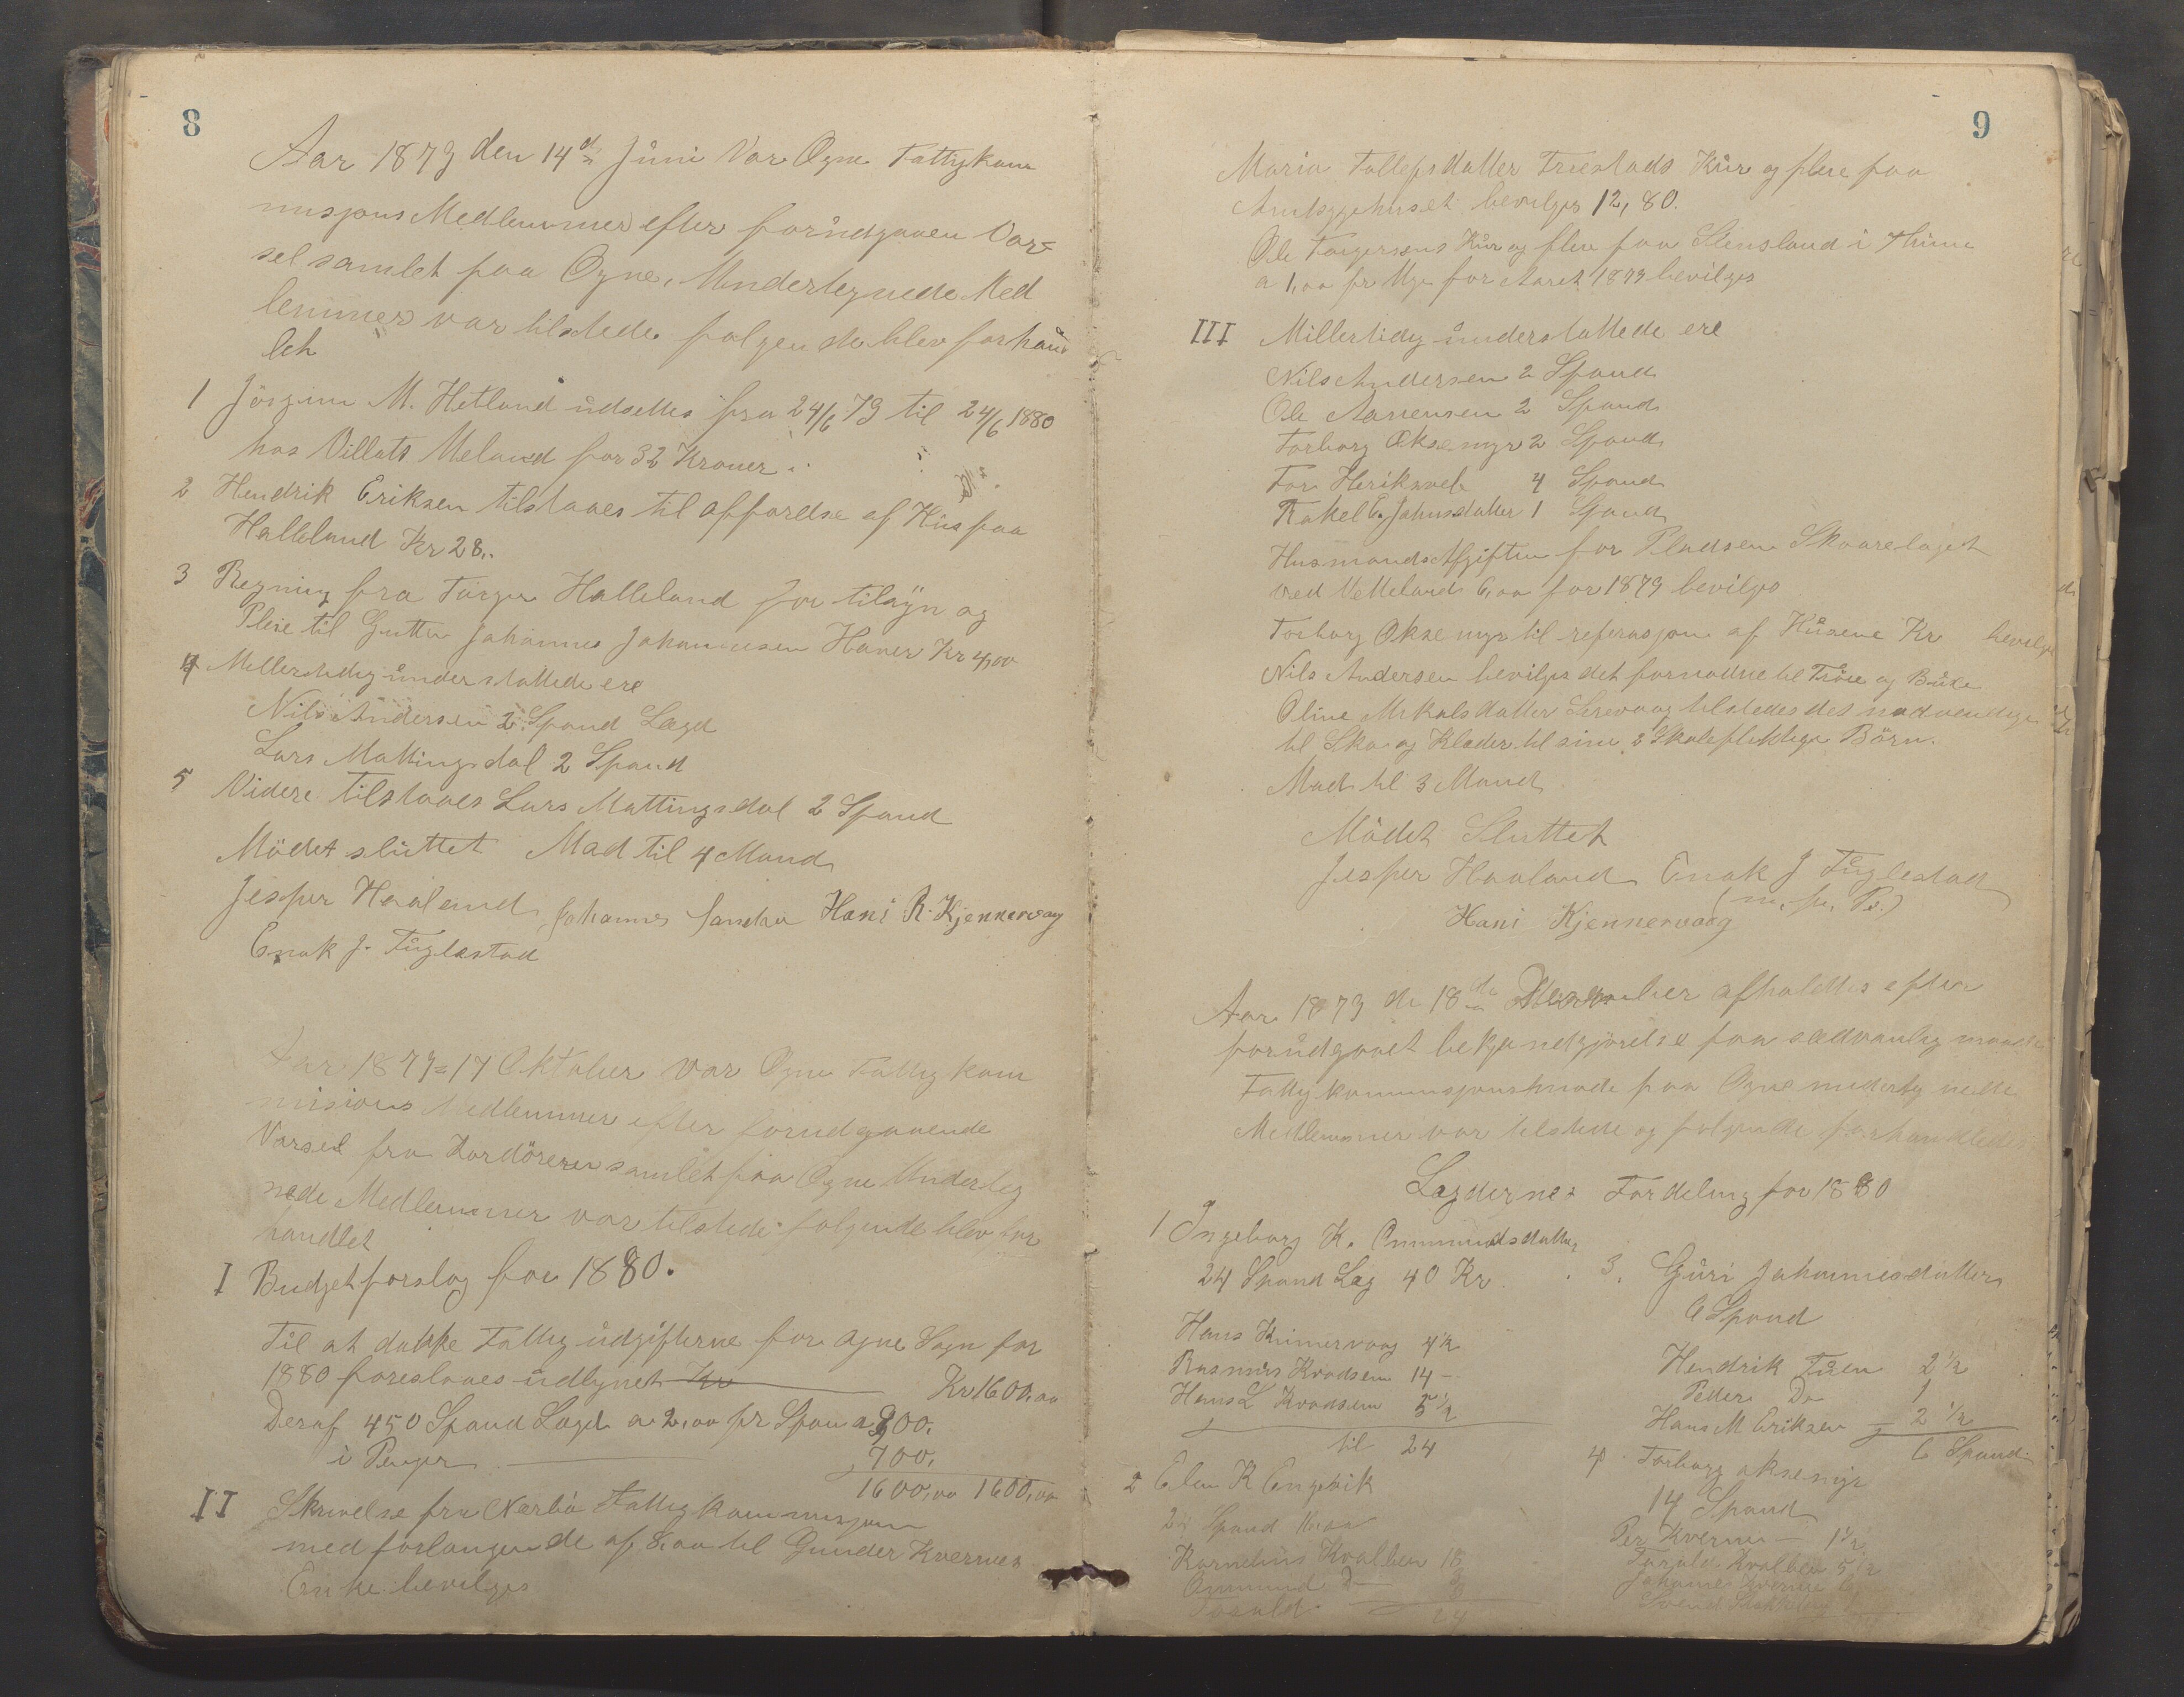 8
Aar 1879 den 14de Juni Var Ogne Fattigkom
misjons Medlemmer efter forudgaaen Var-
sel samlet paa Ogne. Undertegnede Med
lemmer var tilstede følgende blev forhand
let
1 Jörgine M. Hetland udsettes fra 24/6 79 til 24/6 1880
hos Villats Meland for 32 Kroner
2 Hendrik Eriksen tilstaaes til opførelse af Hus paa
Halleland Kr 28,.
3 Regning fra Torger Halleland for tilsyn og
Pleie til Gutten Johannes Johannesen Haver Kr 4,00
4 Mellertidig understøttede ere
Nils Andersen 2 Spand Lægd
Lars Mattingsdal 2 Spand
5 Videre tilstaaes Lars Mattingsdal 2 Spand
Mödet sluttet Mad til 4 Mand
Jesper Haaland Johannes Hans R. Kjennervaag
Enok J. Fuglestad
Aar 1879 17 Oktober var Ogne Fattigkom
misions Medlemmer efter forudgaaende
Varsel fra Ordöreren samlet paa Ogne Underteg
nede Medlemmer var tilstede følgende blev for
handlet
I Budgetforslog for 1880.
Til at dække Fattigudgifterne for Ogne Sogn for
1880 foreslaaes udlignet Kr Kr 1600,00
Deraf 450 Spand Lægd a 2,00 pr Span 900,
i Penger 700,
1600,00 1600,00
II Skrivelse fra Nærbö Fattigkommisjon
med forlangende af 8,00 til Gunder Kvernes
Enke bevilges
9
Maria Tollefsdatter Friestads Kur og pleie paa
Amtssygehuset bevilges 12,80.
Ole Torgersens Kur og pleie paa Stensland i Thime
a 1,00 pr Uge for Aaret 1879 bevilges
III Millertidig understøttede ere
Nils Andersen 2 Spand
Ole Aanensen 2 Spand
Torborg Oksemyr 2 Spand
Tor Herikvel 4 Spand
Rakel E. Johnsdatter 1 Spand
Husmands Afgiften for Pladsen Skaarelaget
ved Vetteland 6,00 for 1879 bevilges
Torborg Oksemyr til reperasjon af Husene Kr bevilges
Nils Andersen bevilges det fornødne til Tröie og Buxe
Oline Mikalsdatter Sirevaag tilstedes det nødvendige
til Sko og Klæder til sine 2 Skolepliktige Börn.
Mad til 3 Mand
Mödet Sluttet
Jesper Haaland Enok J Fuglestad
(m. p. P.)
Hans Kjennervaag
Aar 1879 de 18de Desember afholdtes efter
forudgaaet bekjendtgjörelse paa sædvanlig maade
Fattigkommisjonsmøde paa Ogne undertegnede
Medlemmer var tilstede og følgende forhandledes
Lægdernes Fordeling for 1880
1 Ingeborg K. Ommundsdatter
24 Spand Læg 40 Kr
Hans Kinnervaag 4 1/2
Rasmus Kvadsem 14 -
Hans L Kvadsem 5 1/2
til 24
2 Elen K Engevik
24 Spand
Kornelius Kvalben 18
Ommund D 3
Torald 3
24
3. Guri Johannesdatter
6 Spand
Hendrik Tuen 2 1/2
Peder Do 1
Hans M Eriksen 2 1/2
6 Spand
4. Torborg oksemyr
14 Spand
Per Kverme - 1 1/2
Torald Kvalben 5 1/2
Johannes Kverme 6